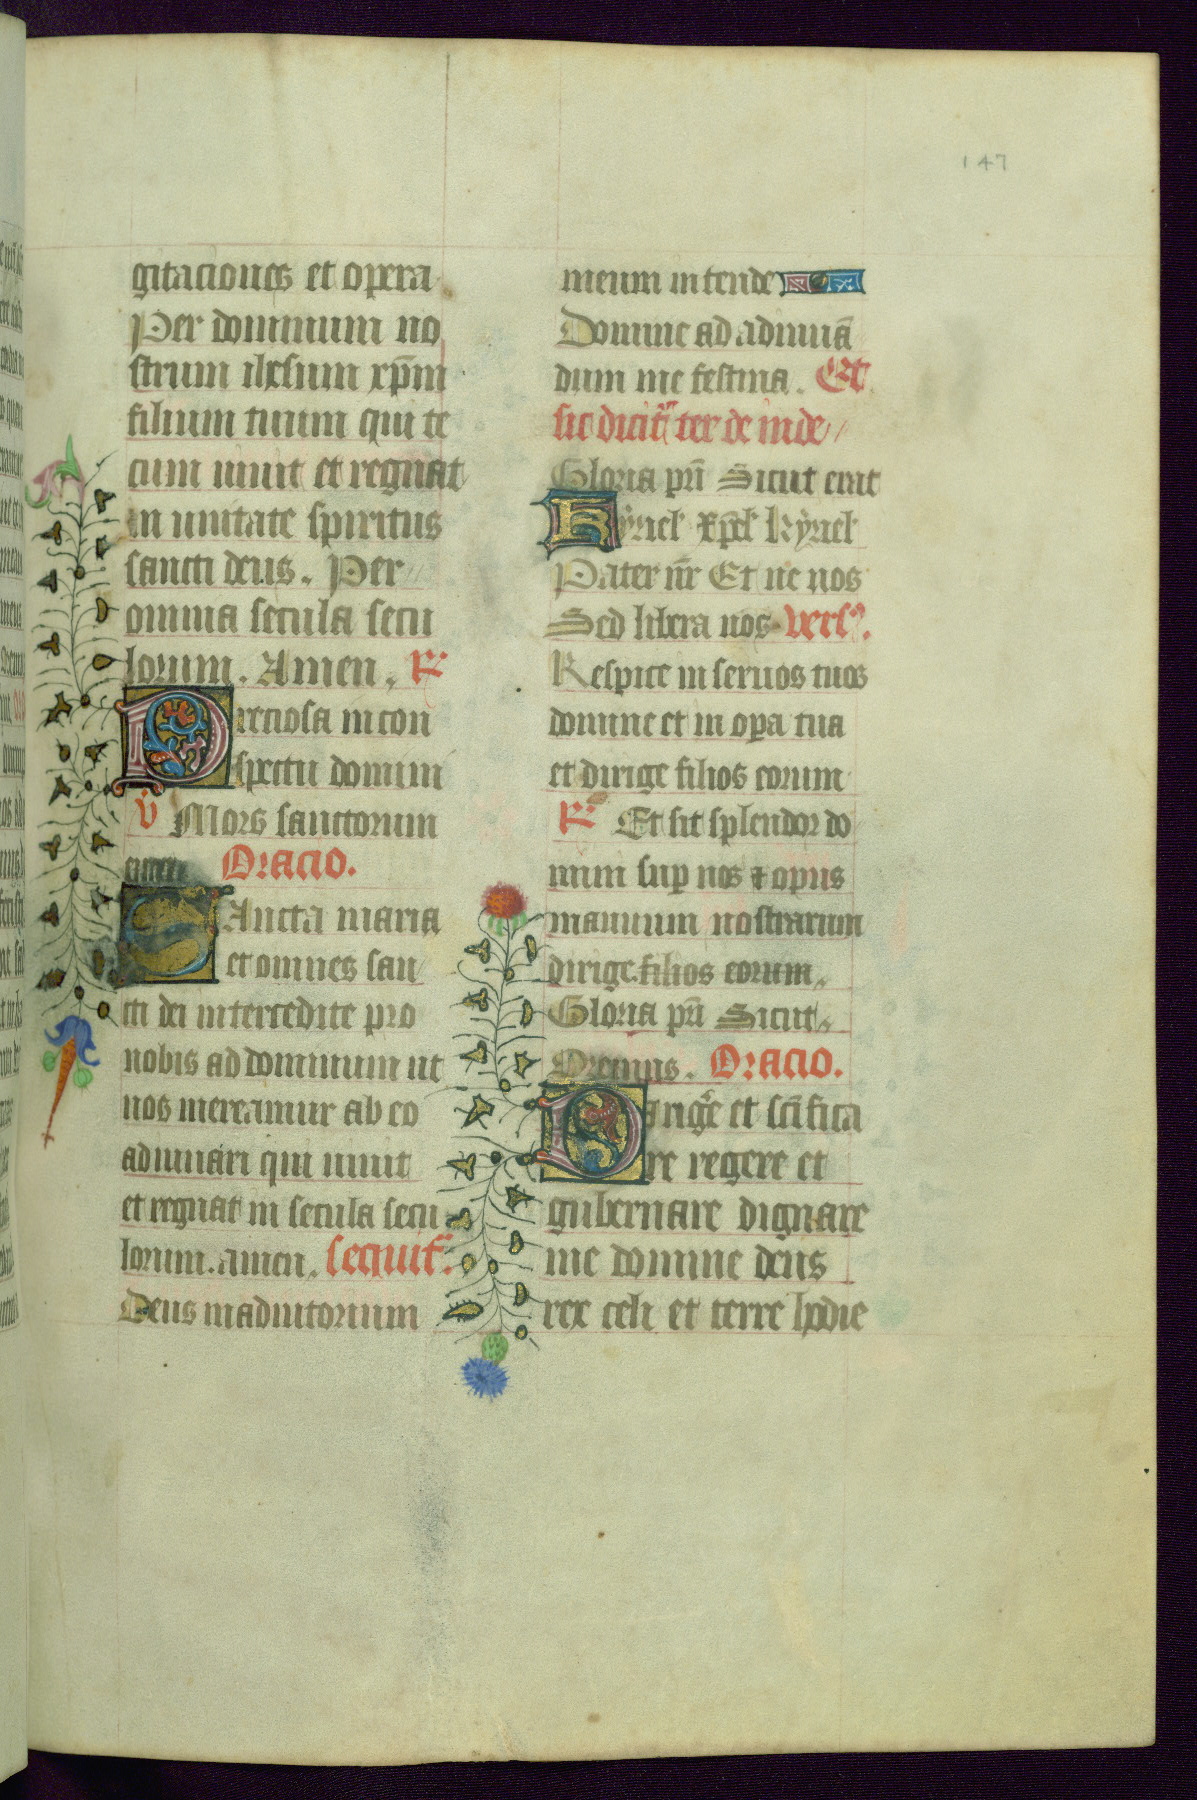 147
gitaciones et opera
Per dominum no
strum ihesum xp̄m
filium tuum qui te
cum uiuit et regnat
in unitate spiritus
sancti deus. Per
omnia secula secu
lorum. Amen. R̸
Preciosa in con
spectu domini
v̇ Mors sanctorum
Oracio.
SAncta maria
et omnes san
cti dei intercedite pro
nobis ad dominum ut
nos mereamur ab eo
adiuuari qui uiuit
et regnat in secula secu
lorum. amen. sequit᷑.
Deus in adiutorium
meum intende
Domine ad adiuuā
dum me festina. Et
sic dicit᷑ ter de inde
Gloria pr̄i Sicut erat
Kyriel' Xp̄el' kyriel'
Pater nr̄ Et ne nos
Sed libera nos vers⁹.
Respice in seruos tuos
domine et in oꝑa tua
et dirige filios eorum
R̸ Et sit splendor do
mini suꝑ nos ⁊ opus
manuum nostrarum
dirige. filios eorum.
Gloria pr̄i Sicut
Oremus. Oracio.
Dirigẽ et scīfica
re regere et
gubernare dignare
me domine deus
rex celi et terre hodie